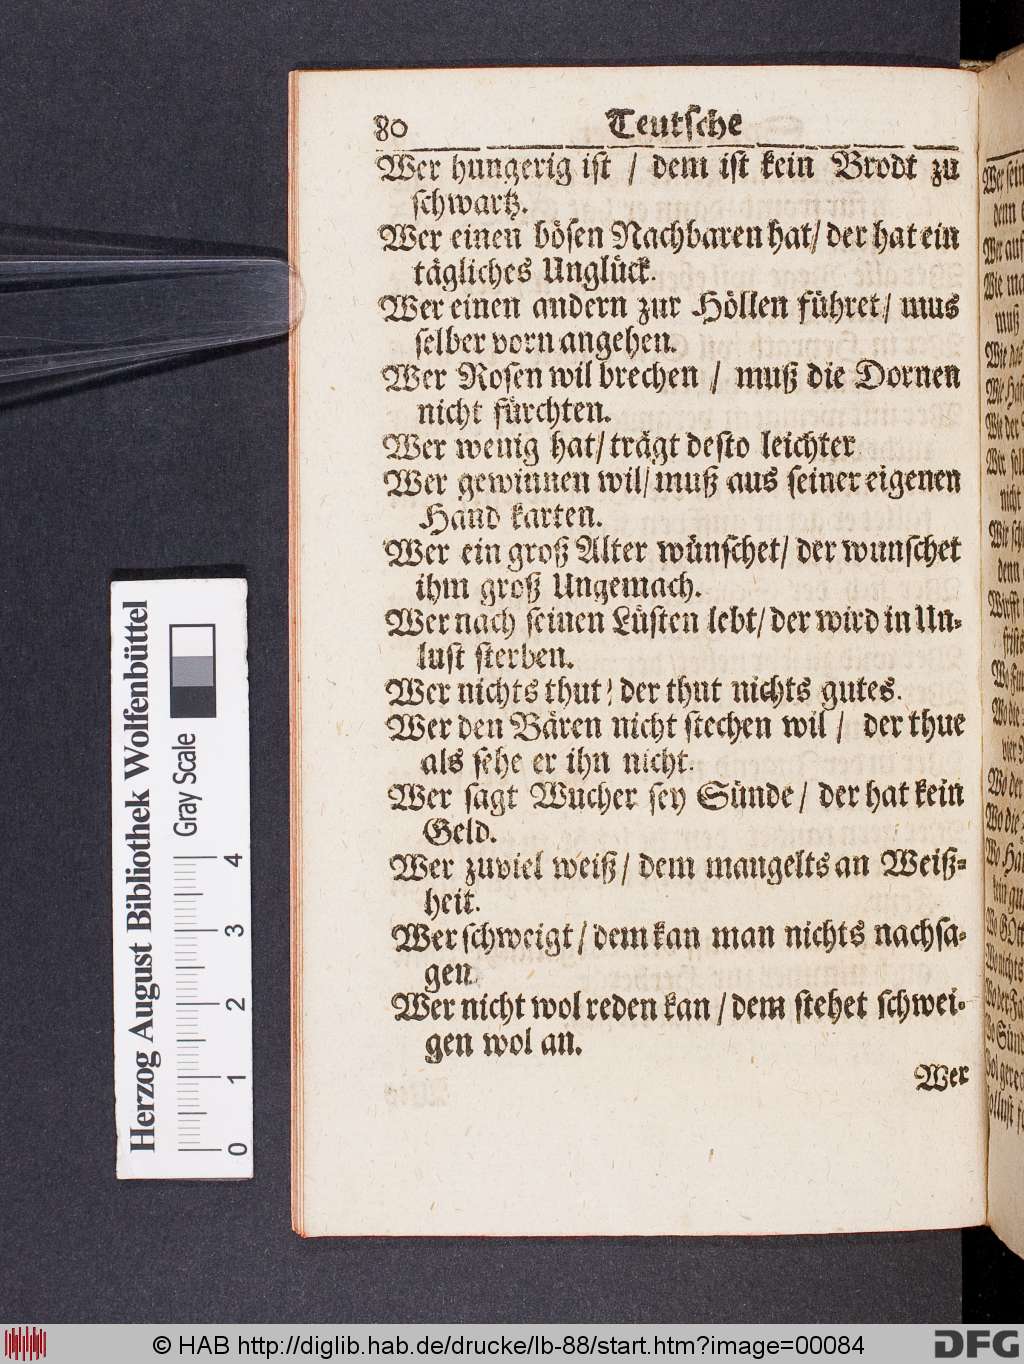 80 Teutsche
Wer hungerig ist / dem ist kein Brodt zu
schwartz.
Wer einen bösen Nachbaren hat/ der hat ein
tägliches Unglück.
Wer einen andern zur Höllen führet/ mus
selber vorn angehen.
Wer Rosen wil brechen / muß die Dornen
nicht fürchten.
Wer wenig hat/ trägt desto leichter
Wer gewinnen wil/ muß aus seiner eigenen
Hand karten.
Wer ein groß Alter wünschet/ der wunschet
ihm groß Ungemach.
Wer nach seinen Lüsten lebt/ der wird in Un-
lust sterben.
Wer nichts thut/ der thut nichts gutes.
Wer den Bären nicht stechen wil / der thue
als sehe er ihn nicht.
Wer sagt Wucher sey Sünde/ der hat kein
Geld.
Wer zuviel weiß/ dem mangelts an Weiß-
heit.
Wer schweigt/ dem kan man nichts nachsa-
gen.
Wer nicht wol reden kan/ dem stehet schwei-
gen wol an.
Wer
Herzog August Bibliothek Wolfenbüttel
Gray Scale
0 1 2 3 4
© HAB http://diglib.hab.de/drucke/lb-88/start.htm?image=00084
DFG